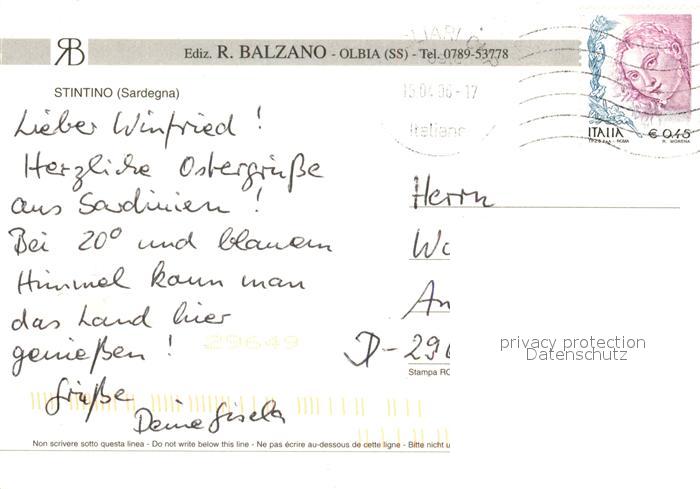 RB
Ediz. R. BALZANO - OLBIA (SS) - Tel. 0789-53778
STINTINO (Sardegna)
15.04.06-17
Italiane
ITALIA € 0,45
R. MORENA
Lieber Winfried !
Herzliche Ostergrüße
aus Sardinien !
Bei 20° und blauem
Himmel kann man
das Land hier
genießen !
Grüße
Deine Gisela
Herrn
Wo
An
D-296
29649
privacy protection
Datenschutz
Stampa RO
Non scrivere sotto questa linea - Do not write below this line - Ne pas écrire au-dessous de cette ligne - Bitte nicht u